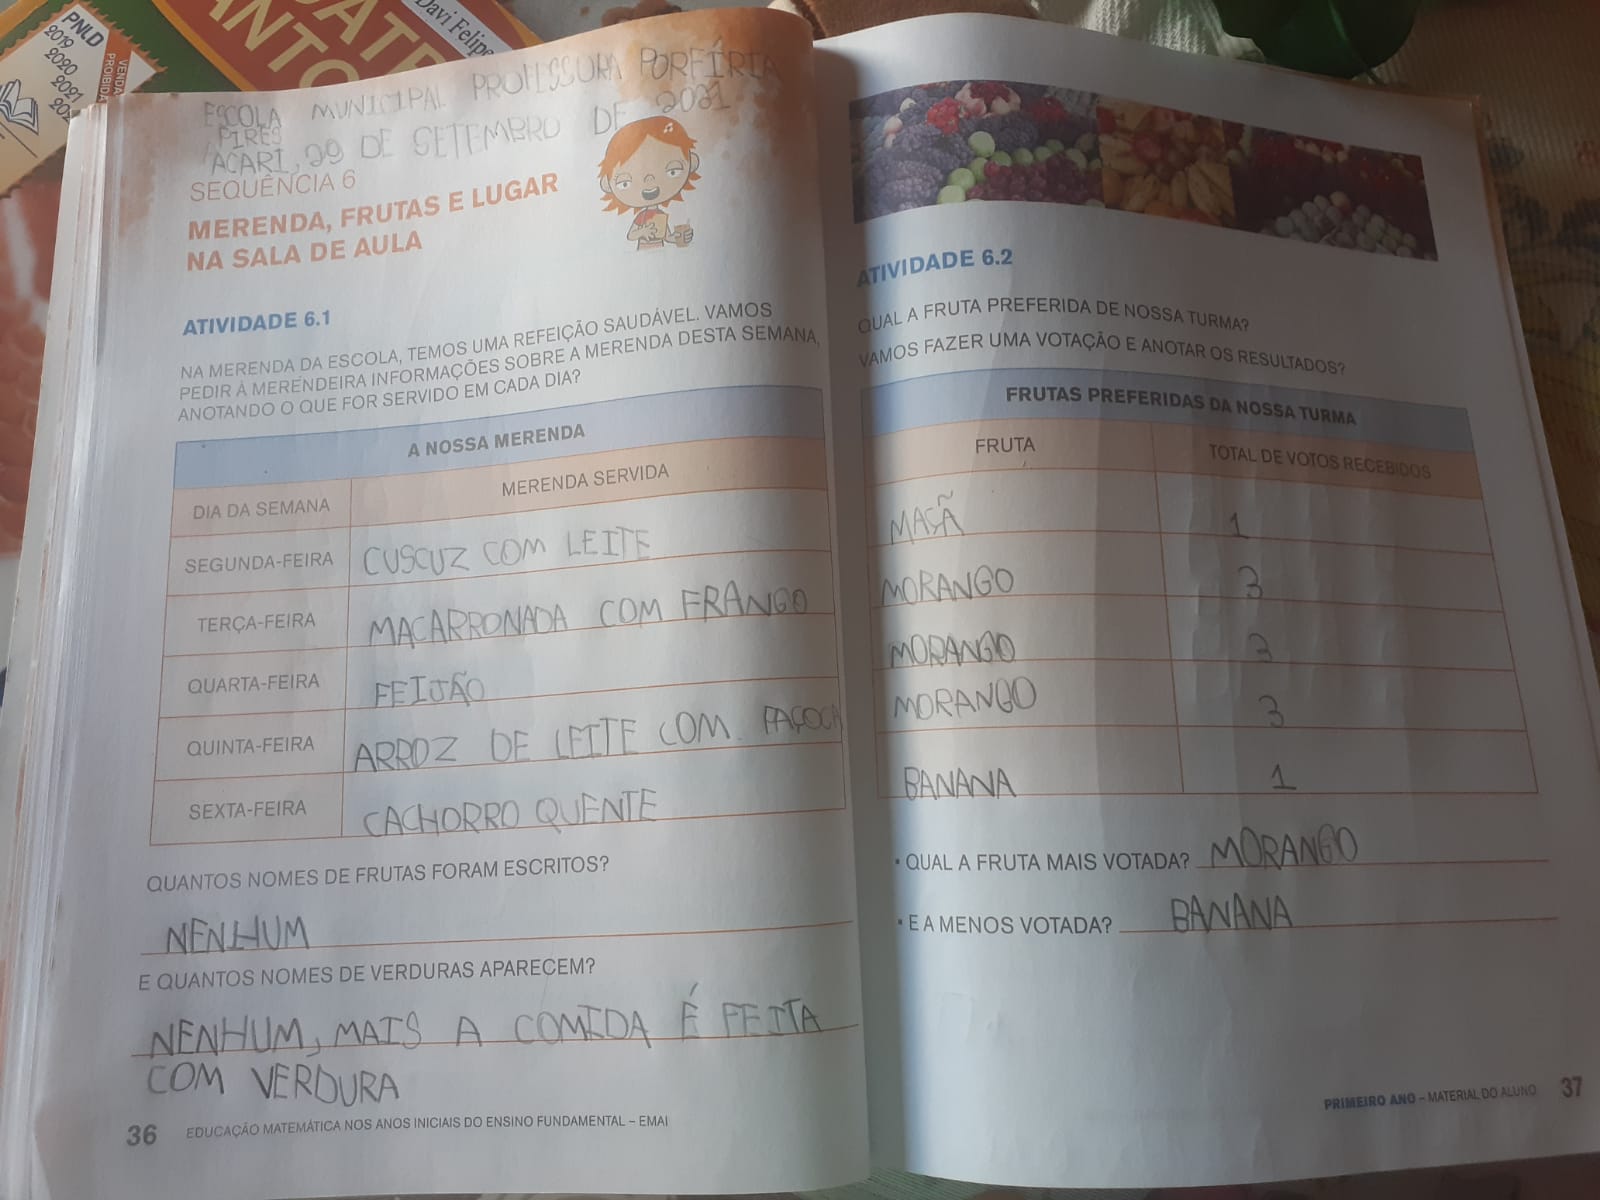 PNLD
2019
2020
2021
VENDA
PROIBIDA
Davi Felipe
ESCOLA MUNICIPAL PROFESSURA PORFÍRIA
PIRES
ACARI, 29 DE SETEMBRO DE 2021
SEQUÊNCIA 6
MERENDA, FRUTAS E LUGAR
NA SALA DE AULA
ATIVIDADE 6.1
NA MERENDA DA ESCOLA, TEMOS UMA REFEIÇÃO SAUDÁVEL. VAMOS
PEDIR À MERENDEIRA INFORMAÇÕES SOBRE A MERENDA DESTA SEMANA,
ANOTANDO O QUE FOR SERVIDO EM CADA DIA?
A NOSSA MERENDA
DIA DA SEMANA MERENDA SERVIDA
SEGUNDA-FEIRA CUSCUZ COM LEITE
TERÇA-FEIRA MACARRONADA COM FRANGO
QUARTA-FEIRA FEIJÃO
QUINTA-FEIRA ARROZ DE LEITE COM. PAÇOCA
SEXTA-FEIRA CACHORRO QUENTE
QUANTOS NOMES DE FRUTAS FORAM ESCRITOS?
NENHUM
E QUANTOS NOMES DE VERDURAS APARECEM?
NENHUM, MAIS A COMIDA É FEITA
COM VERDURA
36 EDUCAÇÃO MATEMÁTICA NOS ANOS INICIAIS DO ENSINO FUNDAMENTAL – EMAI
ATIVIDADE 6.2
QUAL A FRUTA PREFERIDA DE NOSSA TURMA?
VAMOS FAZER UMA VOTAÇÃO E ANOTAR OS RESULTADOS?
FRUTAS PREFERIDAS DA NOSSA TURMA
FRUTA TOTAL DE VOTOS RECEBIDOS
MAÇÃ 1
MORANGO 3
MORANGO 3
MORANGO 3
BANANA 1
• QUAL A FRUTA MAIS VOTADA? MORANGO
• E A MENOS VOTADA? BANANA
PRIMEIRO ANO – MATERIAL DO ALUNO 37